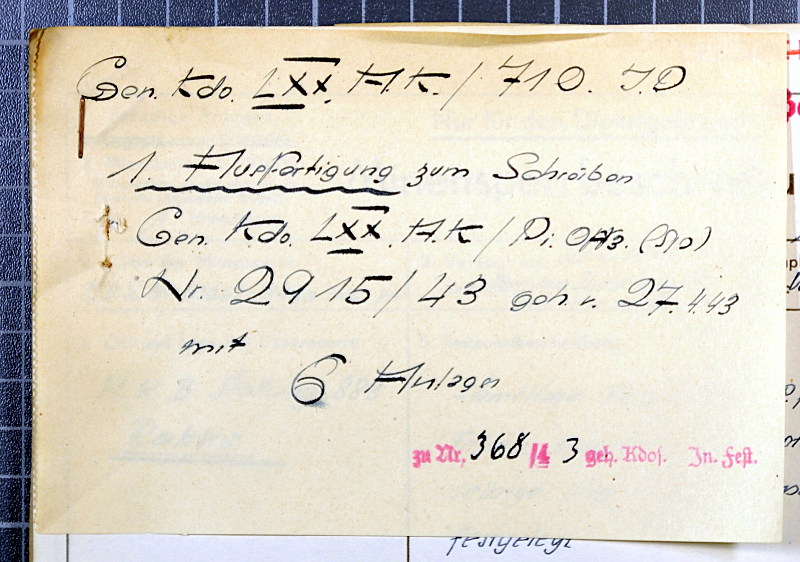 Gen. Kdo. LXX. A.K. / 710. I.D
1. Ausfertigung zum Schreiben
Gen. Kdo. LXX. A.K / Pi. Offz. (Sto)
Nr. 2915/43 geh. v. 27.4.43
mit
6 Anlagen
zu Nr. 368/43 geh. Kdos. In. Fest.
festgelegt